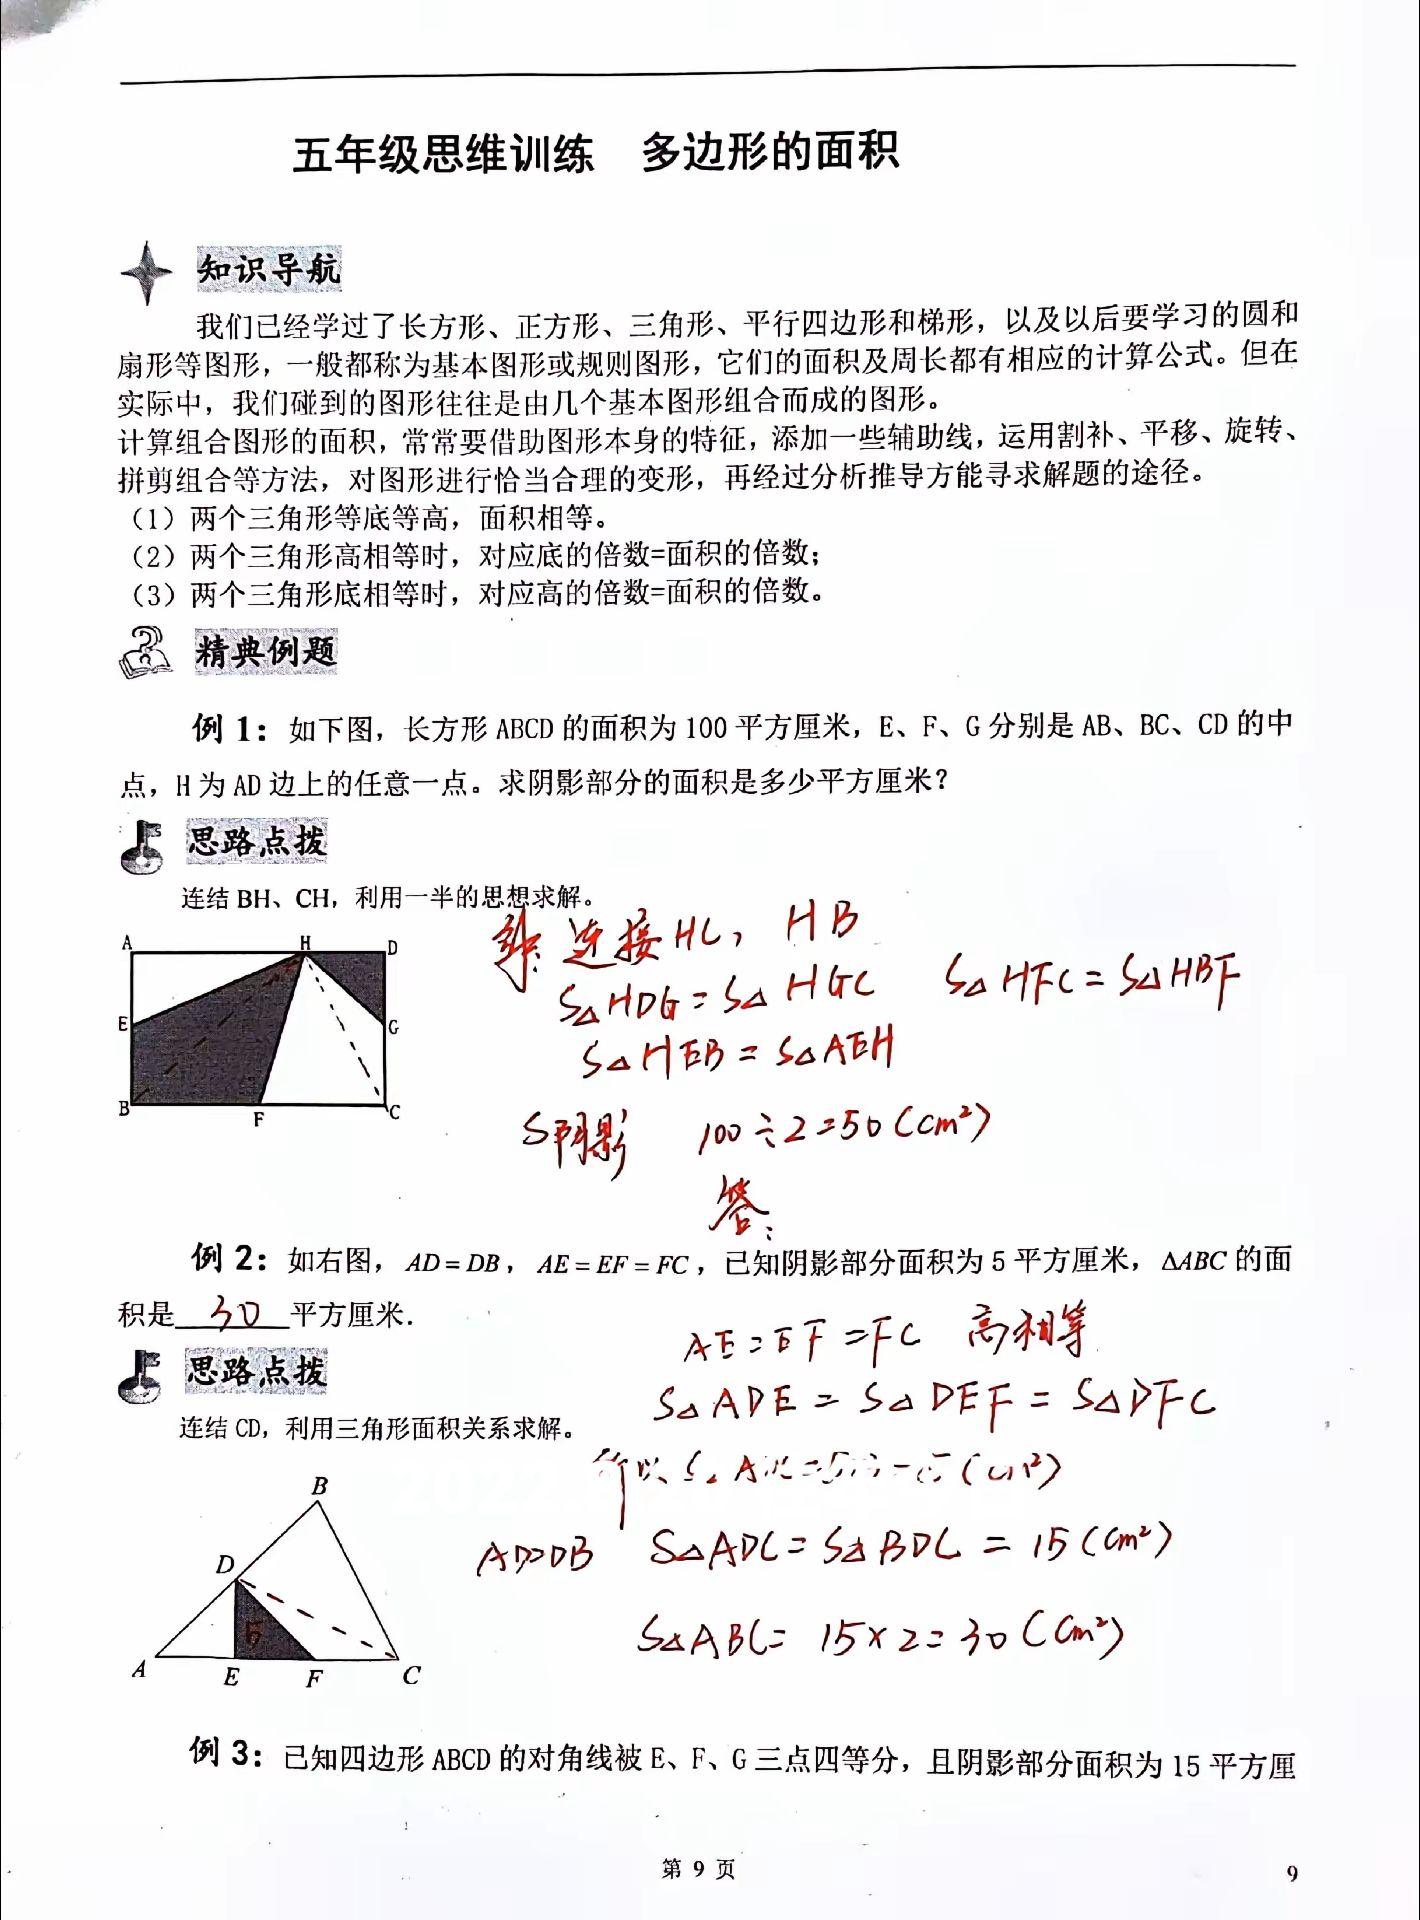 五年级思维训练 多边形的面积
知识导航
我们已经学过了长方形、正方形、三角形、平行四边形和梯形，以及以后要学习的圆和
扇形等图形，一般都称为基本图形或规则图形，它们的面积及周长都有相应的计算公式。但在
实际中，我们碰到的图形往往是由几个基本图形组合而成的图形。
计算组合图形的面积，常常要借助图形本身的特征，添加一些辅助线，运用割补、平移、旋转、
拼剪组合等方法，对图形进行恰当合理的变形，再经过分析推导方能寻求解题的途径。
（1）两个三角形等底等高，面积相等。
（2）两个三角形高相等时，对应底的倍数=面积的倍数；
（3）两个三角形底相等时，对应高的倍数=面积的倍数。
精典例题
例 1：如下图，长方形 ABCD 的面积为 100 平方厘米，E、F、G 分别是 AB、BC、CD 的中
点，H 为 AD 边上的任意一点。求阴影部分的面积是多少平方厘米？
思路点拨
连结 BH、CH，利用一半的思想求解。
连接HC，HB
S△HDG=S△HGC S△HFC=S△HBF
S△HEB=S△AEH
S阴影 100÷2=50(cm²)
答：
A H D
E G
B F C
例 2：如右图，AD=DB，AE=EF=FC，已知阴影部分面积为 5 平方厘米，ΔABC 的面
积是 30 平方厘米.
AE=EF=FC 高相等
思路点拨
S△ADE=S△DEF=S△DFC
连结 CD，利用三角形面积关系求解。
所以
AD=DB S△ADC=S△BDC=15(cm²)
S△ABC=15×2=30(cm²)
B
D
5
A E F C
例 3：已知四边形 ABCD 的对角线被 E、F、G 三点四等分，且阴影部分面积为 15 平方厘
第 9 页
9